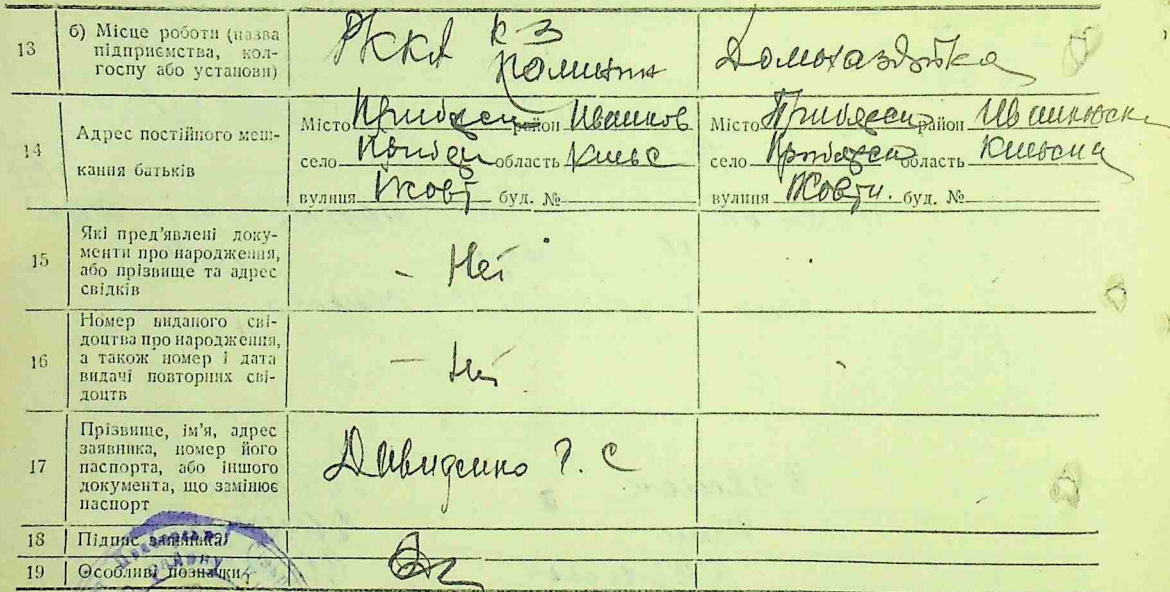 13 б) Місце роботи (назва
підприємства, кол-
госпу або установи) РККА К-З Домохазяйка
14 Адрес постійного меш-
кання батьків
Місто район Иванков
село область Киьс
вулиця Жовт буд. №
Місто район
село область
вулиця Жовтн. буд. №
15 Які пред'явлені доку-
менти про народження,
або прізвище та адрес
свідків - Неі
16 Номер виданого сві-
доцтва про народження,
а також номер і дата
видачі повторних сві-
доцтв - Неі
17 Прізвище, ім'я, адрес
заявника, номер його
паспорта, або іншого
документа, що замінює
паспорт Давиденко Г. С
18 Підпис заявника
19 Особливі позначки
району